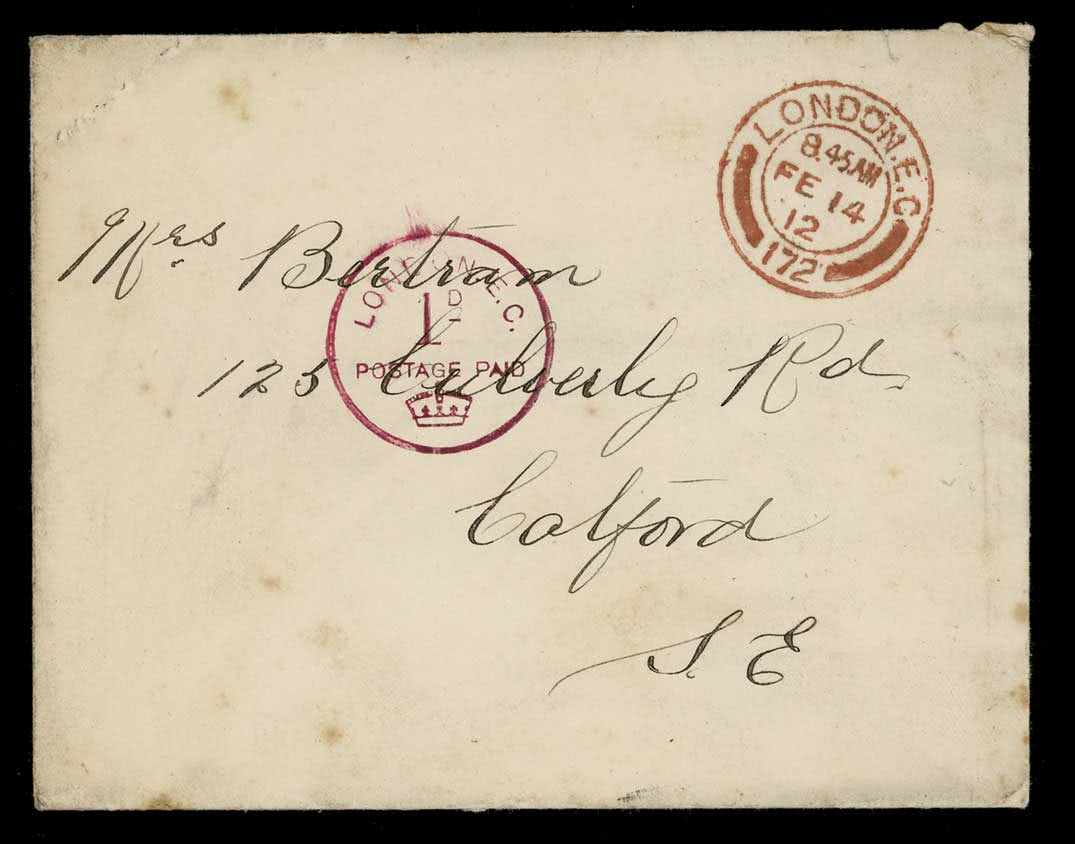 LONDON.E.C
8.45AM
FE 14
12
172
Mrs Bertram
LONDON.E.C.
1D
POSTAGE PAID
125 Culverley Rd
Catford
S.E